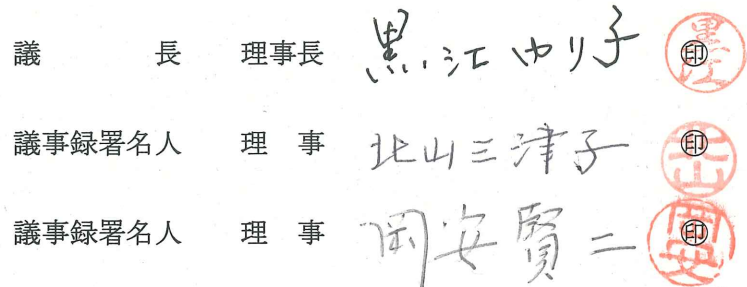 議　　　長　理事長　黒江ゆり子　㊞　黒江
議事録署名人　理　事　北山三津子　㊞　北山
議事録署名人　理　事　岡安賢二　㊞　岡安